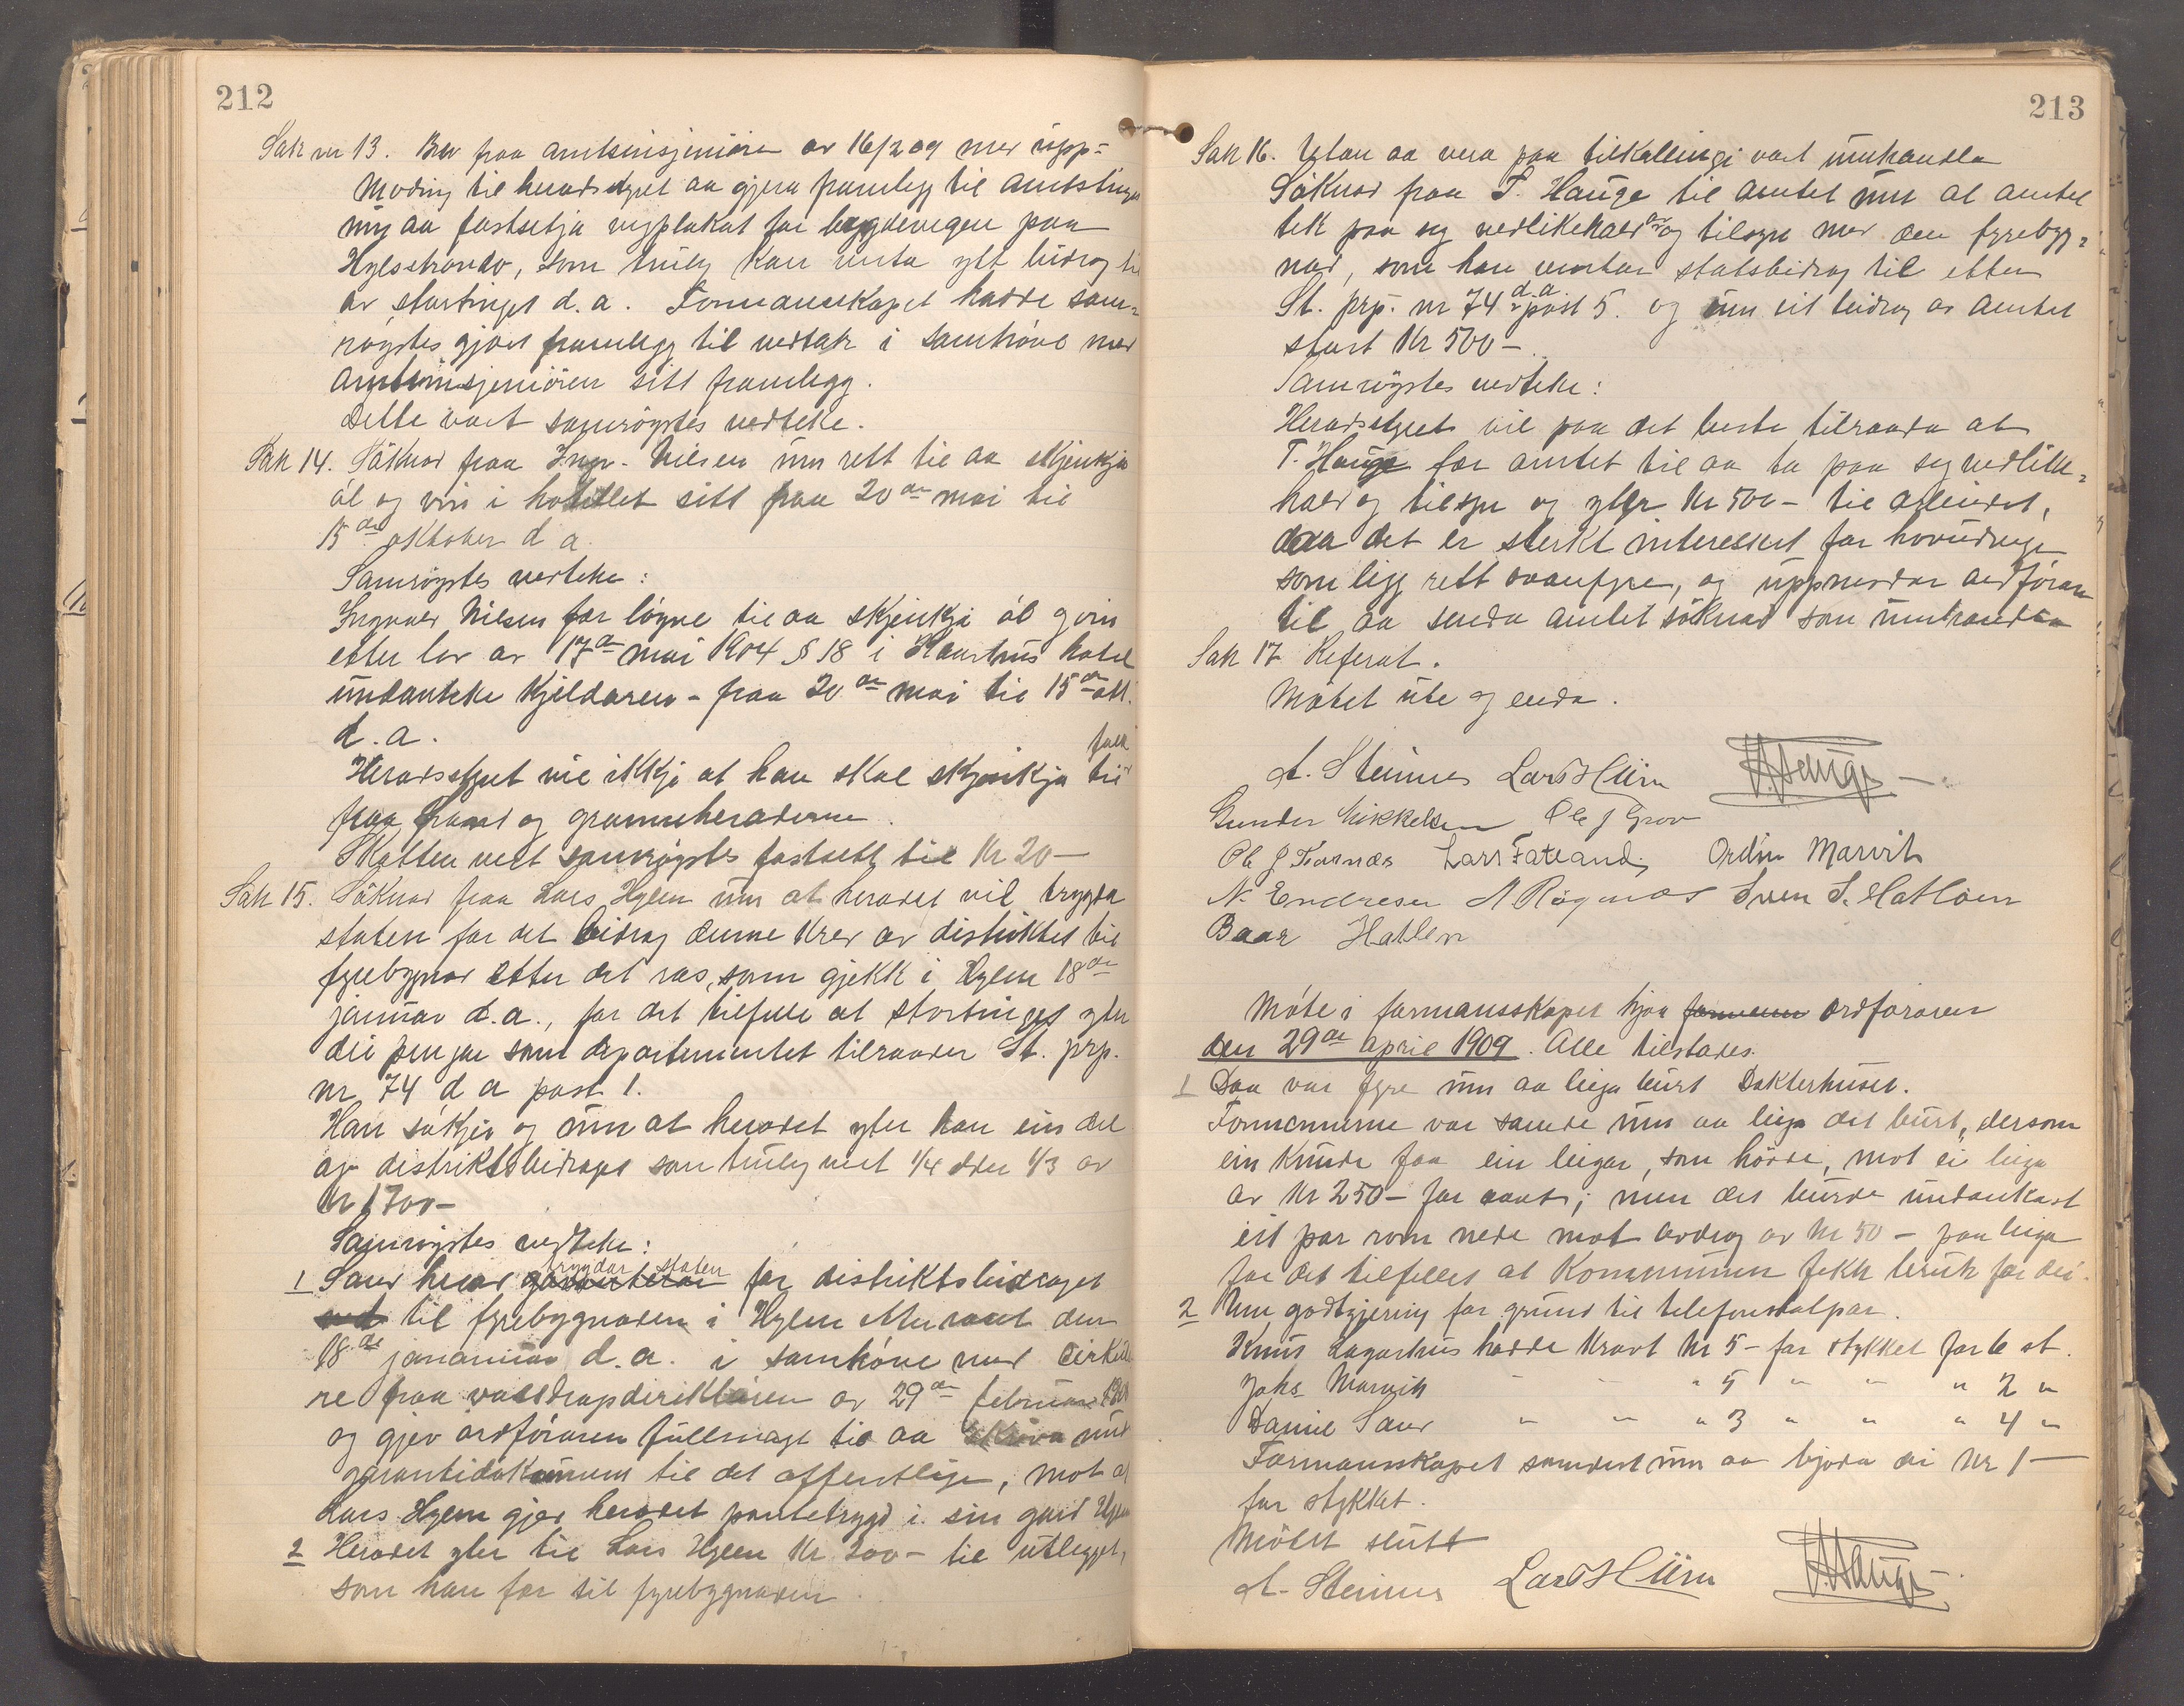 212
Sak nr 13. Brev fraa amtsinsjeniören av 16/2 09 med upp=
moding til heradsstyret aa gjera framlegg til amtstinget
um aa fastsetja vegplakat for bygdevegen paa
Hylsstrondo, som truleg kan venta ytt bidrag til
av stortinget d.a. Formannskapet hadde sam=
røystes gjort framlegg til vedtak i samhöve med
amtsinsjeniören sitt framlegg.
Dette vart samröystes vedteke.
Sak 14. Söknad fraa Ingv. Nilsen um rett til aa skjenkja
öl og vin i hotellet sitt fraa 20de mai til
15de oktober d a.
Samröystes vedteke:
Ingvald Nilsen fær löyve til aa skjenkja öl og vin
etter lov av 17de mai 1904 § 18 i hotel
undanteke kjeldaren - fraa 20de mai til 15de okt.
d.a.
Heradsstyret vil ikkje at han skal skjenkja til folk
fraa herad og grannheraderne.
Skatten vert samröystes fastsett til Kr 20—
Sak 15. Söknad fraa Lars Hylen um at heradet vil trygda
staten for det bidrag denne krev av distriktet til
fyrebygnad etter det ras, som gjekk i Hylen 18de
januar d.a., for det tilfelle at stortinget yter
dei pengar som departementet tilraader St. prp.
nr 74 d a post 1.
Han sökjer og um at heradet yter han ein del
av distriktsbidraget som truleg vert 1/4 eller 1/3 av
Kr 1700—
Samröystes vedteke:
1 Saud herad trygdar staten for distriktsbidraget
til fyrebygnaden i Hylen den
18de januar d.a. i samhöve med cirkulæ
re fraa vassdragsdirektören av 29de februar
og gjev ordföraren fullmagt til aa skriva und
garantidokument til det offentlege, mot at
Lars Hylen gjev heradet pantetrygd i sin gard Hylen
2 Heradet yter til Lars Hylen Kr 200— til utlegget,
som han fær til fyrebygnaden.
213
Sak 16. Utan aa vera paa tilkallingi vart umhandla
Söknad fraa T. Hauge til amtet um at amtet
tek paa seg vedlikehald av og tilsyn med den fyrebyg=
nad, som han ventar statsbidrag til etter
St. prp. nr 74 d.a. post 5. og um eit bidrag av amtet
stort Kr 500—.
Samröystes vedteke:
Heradsstyret vil paa det beste tilraada at
T. Hauge fær amtet til aa ta paa seg vedlike=
hald og tilsyn og yter Kr 500— til arbeidet,
daa det er sterkt interessert for hovudvegen
som ligg rett ovanfyre, og uppmodar ordföraren
til aa senda amtet söknad som umhandla
Sak 17 Referat.
Mötet ute og enda.
A. Steinnes Lars H Urn T. Hauge
Gunder Mikkelsen Ole J Grov
Ole J Kvarnæs Lars Fatland Ordin Marvik
N. Endresen Sven S. Hatlöen
Baar Hatlen
Möte i formannsskapet hjaa formann ordföraren
den 29de april 1909. Alle tilstades.
1 Daa var fyre um aa leiga burt Dokterhuset.
Formennerne var samde um aa leiga det burt, dersom
ein kunde faa ein leigar, som hövde, mot ei leiga
av Kr 250— for aaret; men det burde undantakast
eit par rom nede mot avdrag av Kr 50— paa leiga
for det tilfellet at Kommunen fekk bruk for dei.
2 Um godtgjering for grund til telefonstolpar.
Knut Lagarhus hadde kravt Kr 5— for stykket for 6 st.
Johs. Marvik " " " 5 " " " 2 "
Daniel Saur " " " 3 " " " 4 "
Formannsskapet samdest um aa bjoda dei Kr 1—
for stykket.
Mötet slutt
A. Steinnes Lars H Urn T. Hauge